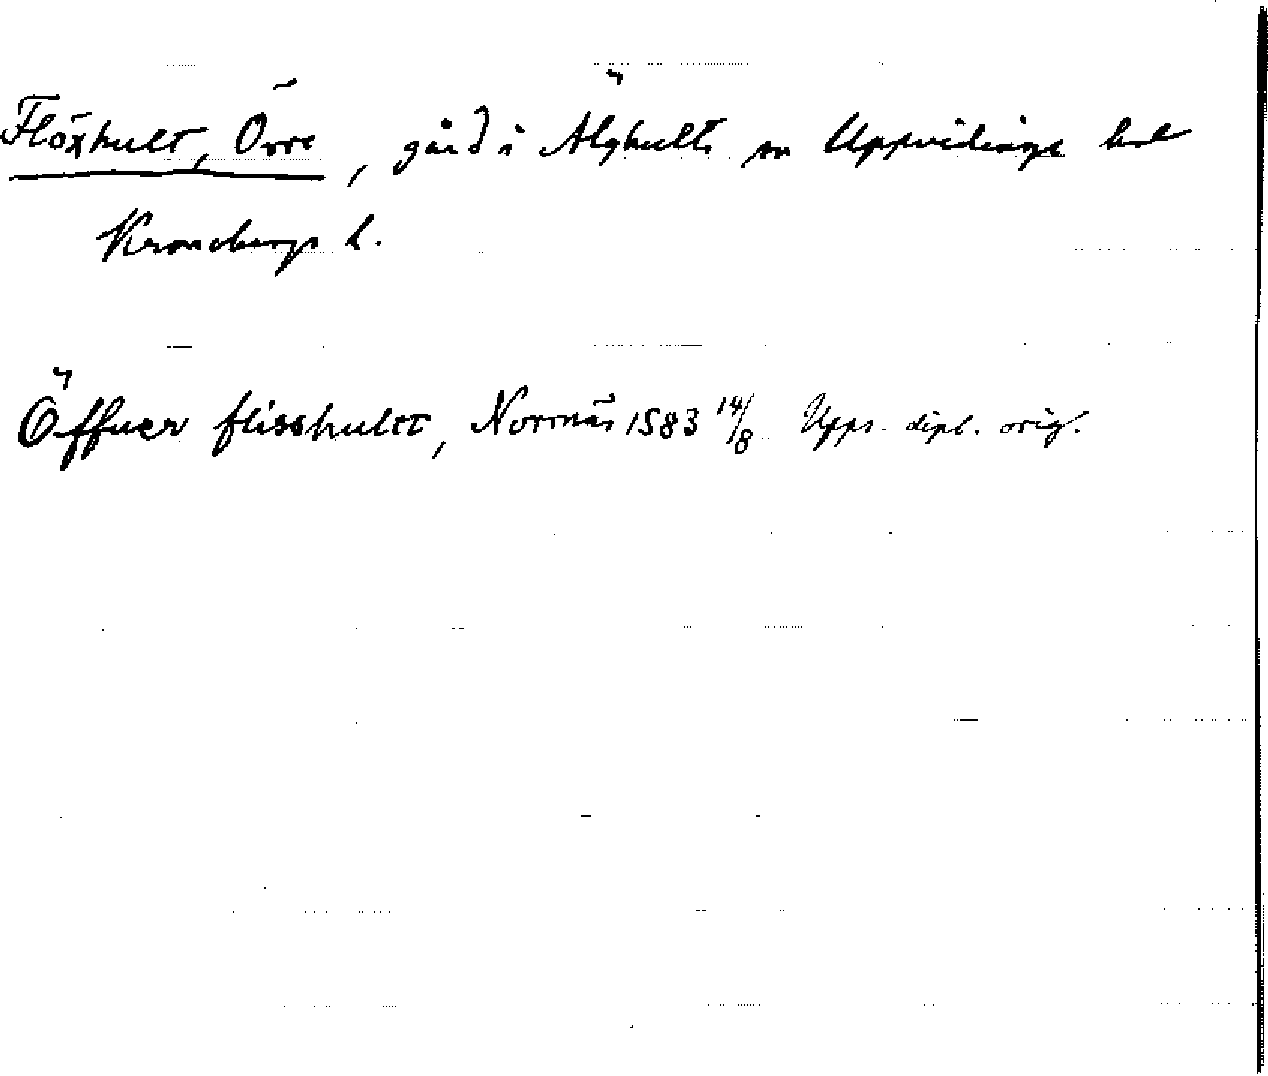 Flöxhult, Övre, gård i Älghults sn Uppvidinge hd
Kronobergs l.
Öffuer flisshultt, Norrnäs 1583 14/8 Upps. dipl. orig.